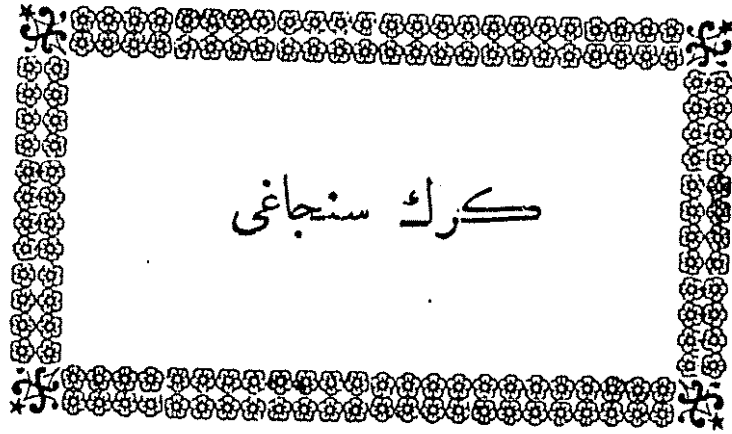 كرك سنجاغى